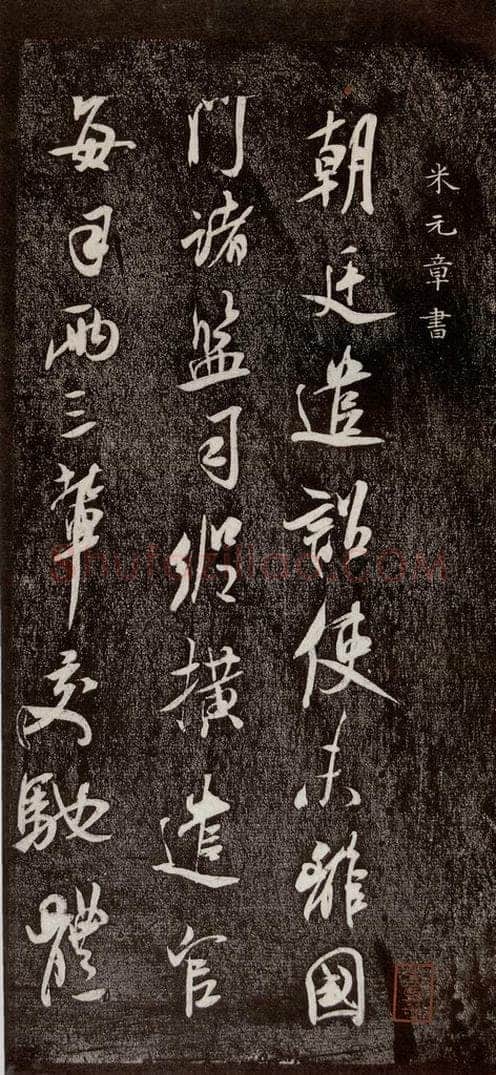 米元章書
朝廷遣詔使未離國
門諸監司縱橫遣官
每日兩三輩交馳體
Shufaziliao.COM